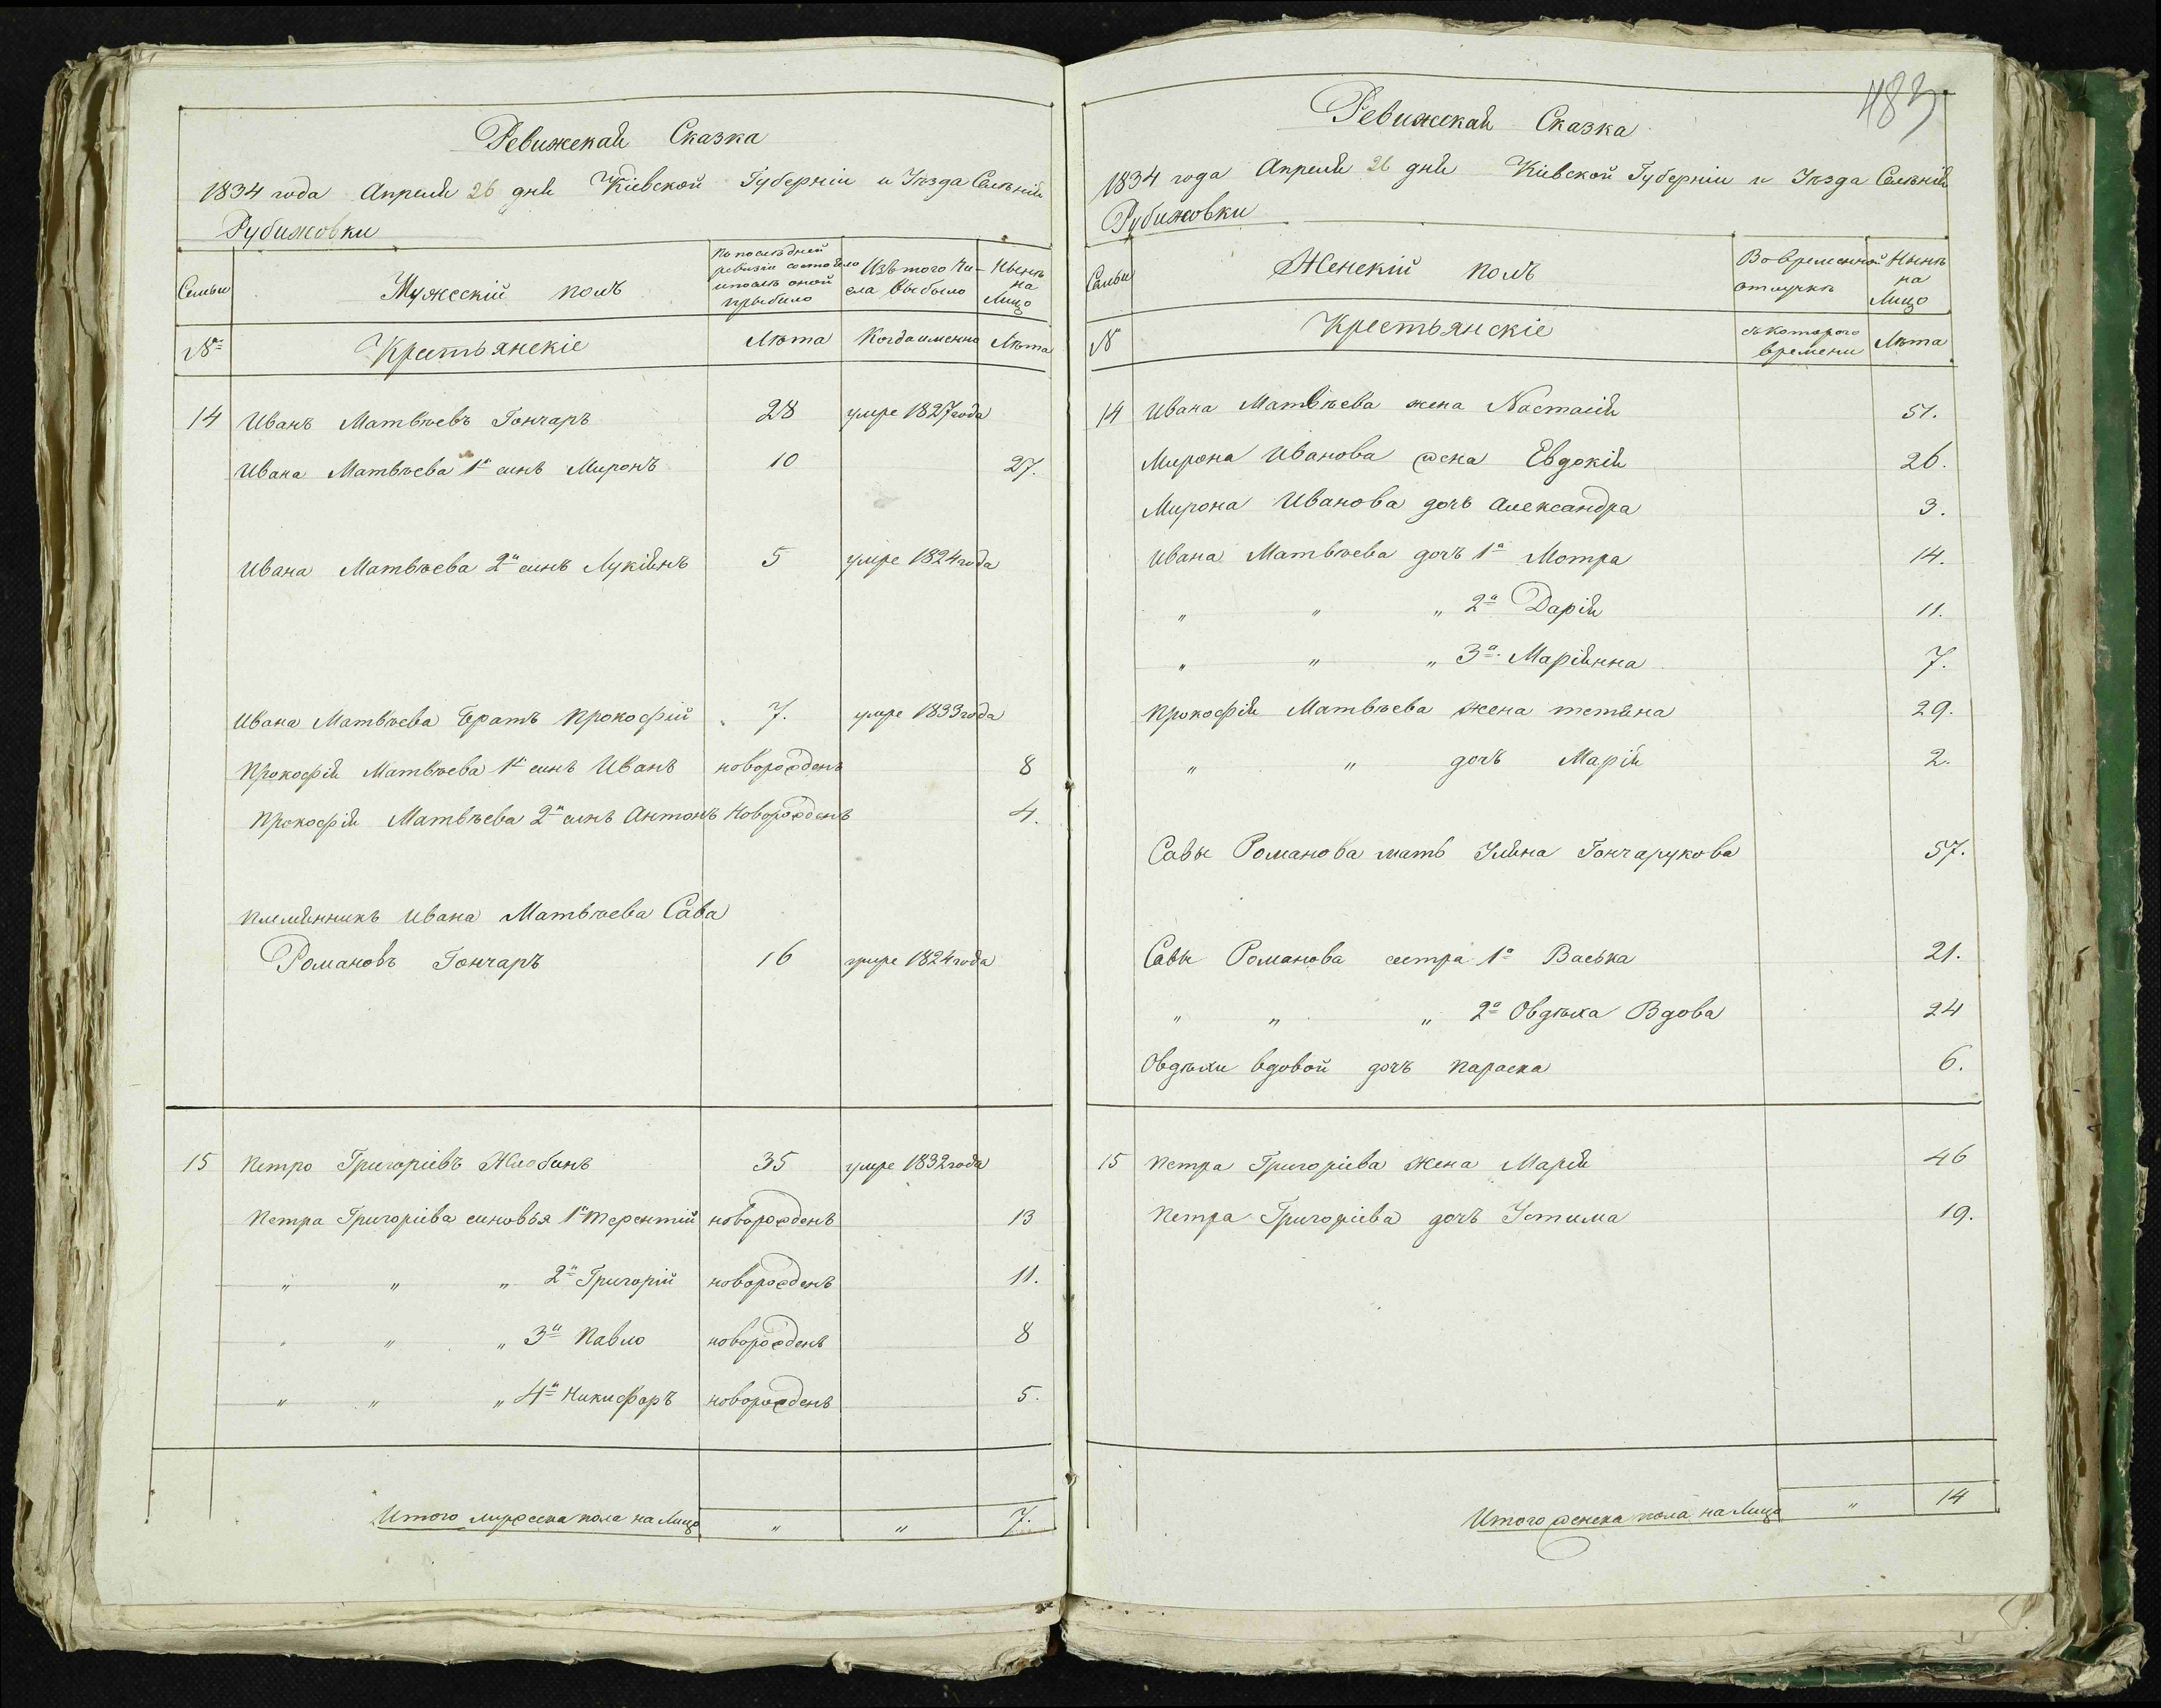 Ревижская Сказка
1834 года Апреля 26 дня Кіевской Губерніи и Уѣзда Селѣнія
Рубижовки
Семьи
Мужескій полъ
По последней ревизіи состояло и послѣ оной прыбыло
Изъ того чи-
сла выбыло
Нынѣ на Лицо
№
Крестьянскіе
Лѣта
Когда именно
Лѣта
14 Иванъ Матвѣевъ Гончаръ 28 умре 1827 года
Ивана Матвѣева 1й сынъ Миронъ 10 27.
Ивана Матвѣева 2й сынъ Лукіянъ 5 умре 1824 года
Ивана Матвѣева Братъ Прокофій 7. умре 1833 года
Прокофія Матвѣева 1й сынъ Иванъ новорожденъ 8
Прокофія Матвѣева 2й сынъ Антонъ Новорожденъ 4.
Племянникъ Ивана Матвѣева Сава
Романовъ Гончаръ 16 умре 1824 года
15 Петро Григоріевъ Жлобинъ 35 умре 1832 года
Петра Григоріева сыновья 1й Терентій новорожденъ 13
" " " 2й Григорій новорожденъ 11.
" " " 3й Павло новорожденъ 8
" " " 4й Никифоръ новорожденъ 5.
Итого мужеска пола на Лицо " " 7.
483
Ревижская Сказка
1834 года Апреля 26 дня Кіевской Губерніи и Уѣзда Селѣнія
Рубижовки
Семьи
Женскій полъ
Во временной отлучкѣ
Нынѣ на Лицо
№
Крестьянскіе
съ котораго времени
Лѣта
14 Ивана Матвѣева жена Настасія 51.
Мирона Иванова жена Евдокія 26.
Мирона Иванова дочь Александра 3.
Ивана Матвѣева дочъ 1я Мотра 14.
" " " 2я Дарія 11.
" " " 3я Маріянна 7.
Прокофія Матвѣева жена тетяна 29.
" " дочъ Марія 2.
Савы Романова мать Уляна Гончарукова 57.
Савы Романова сестра 1я Васька 21.
" " " 2я Овдѣха Вдова 24
Овдѣхи вдовой дочъ Параска 6.
15 Петра Григоріева жена Марія 46
Петра Григоріева дочъ Устима 19.
Итого женска пола на Лицо " 14